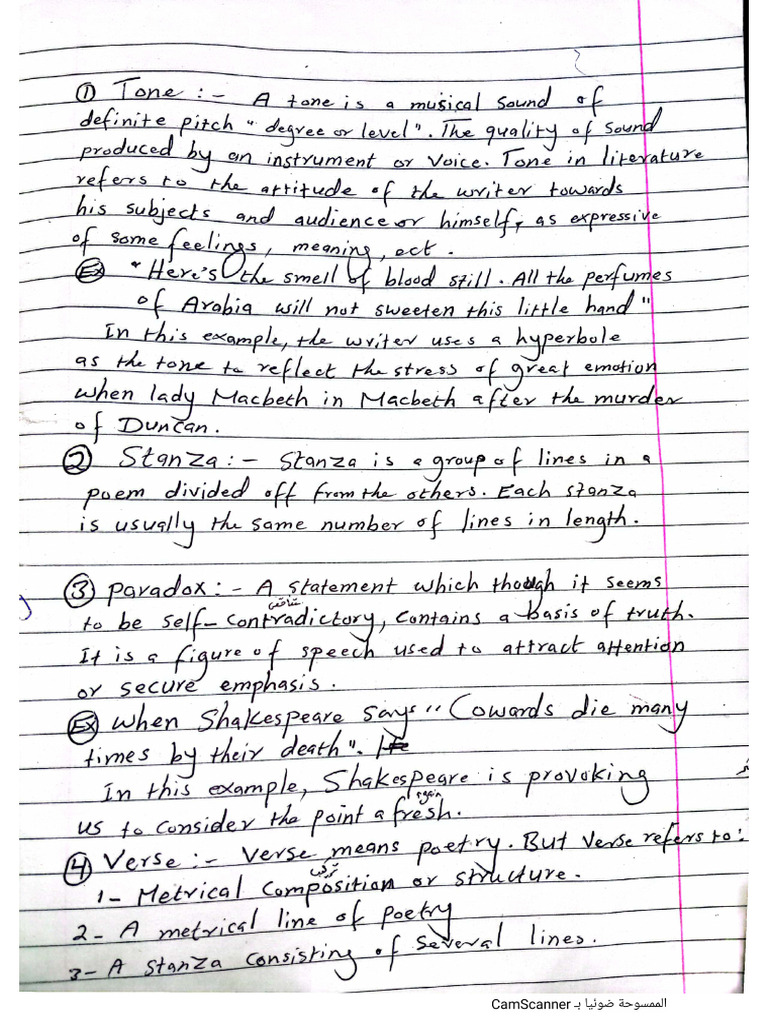 ① Tone :- A tone is a musical sound of
definite pitch "degree or level". The quality of sound
produced by an instrument or voice. Tone in literature
refers to the attitude of the writer towards
his subjects and audience or himself, as expressive
of some feelings, meaning, ect.
Ex "Here's the smell of blood still. All the perfumes
of Arabia will not sweeten this little hand"
In this example, the writer uses a hyperbole
as the tone to reflect the stress of great emotion
when lady Macbeth in Macbeth after the murder
of Duncan.
② Stanza :- Stanza is a group of lines in a
poem divided off from the others. Each stanza
is usually the same number of lines in length.
③ paradox :- A statement which though it seems
to be self-contradictory, contains a basis of truth.
It is a figure of speech used to attract attention
or secure emphasis.
Ex when Shakespeare says "Cowards die many
times by their death".
In this example, Shakespeare is provoking
again
us to consider the point a fresh.
④ Verse :- Verse means poetry. But Verse refers to:
1- Metrical Composition or structure.
2- A metrical line of poetry
3- A stanza consisting of several lines.
الممسوحة ضوئيا بـ CamScanner